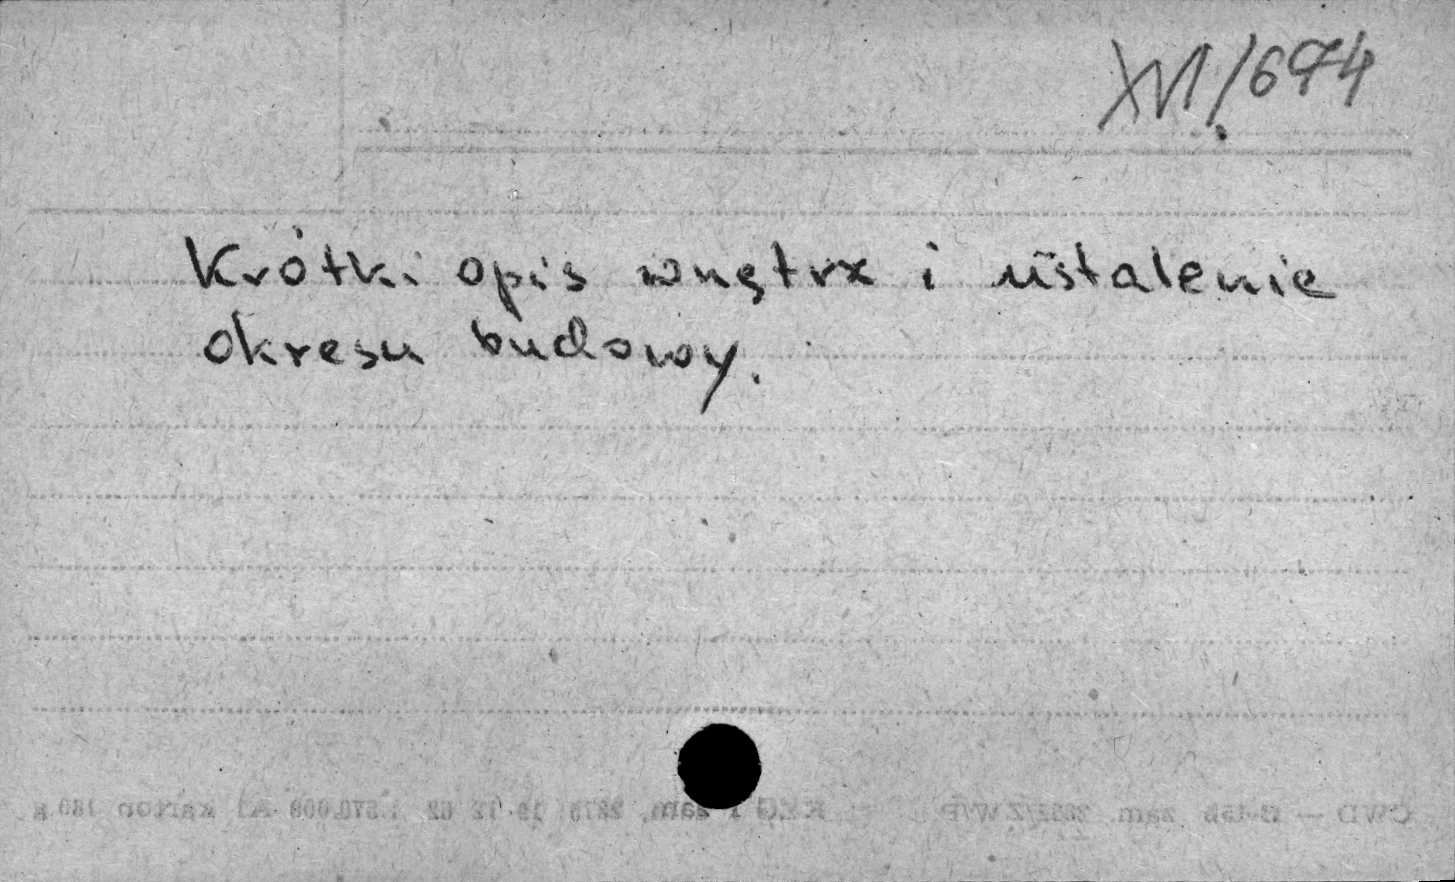 XVI/694
Krótki opis wnętrz i ustalenie
okresu budowy.